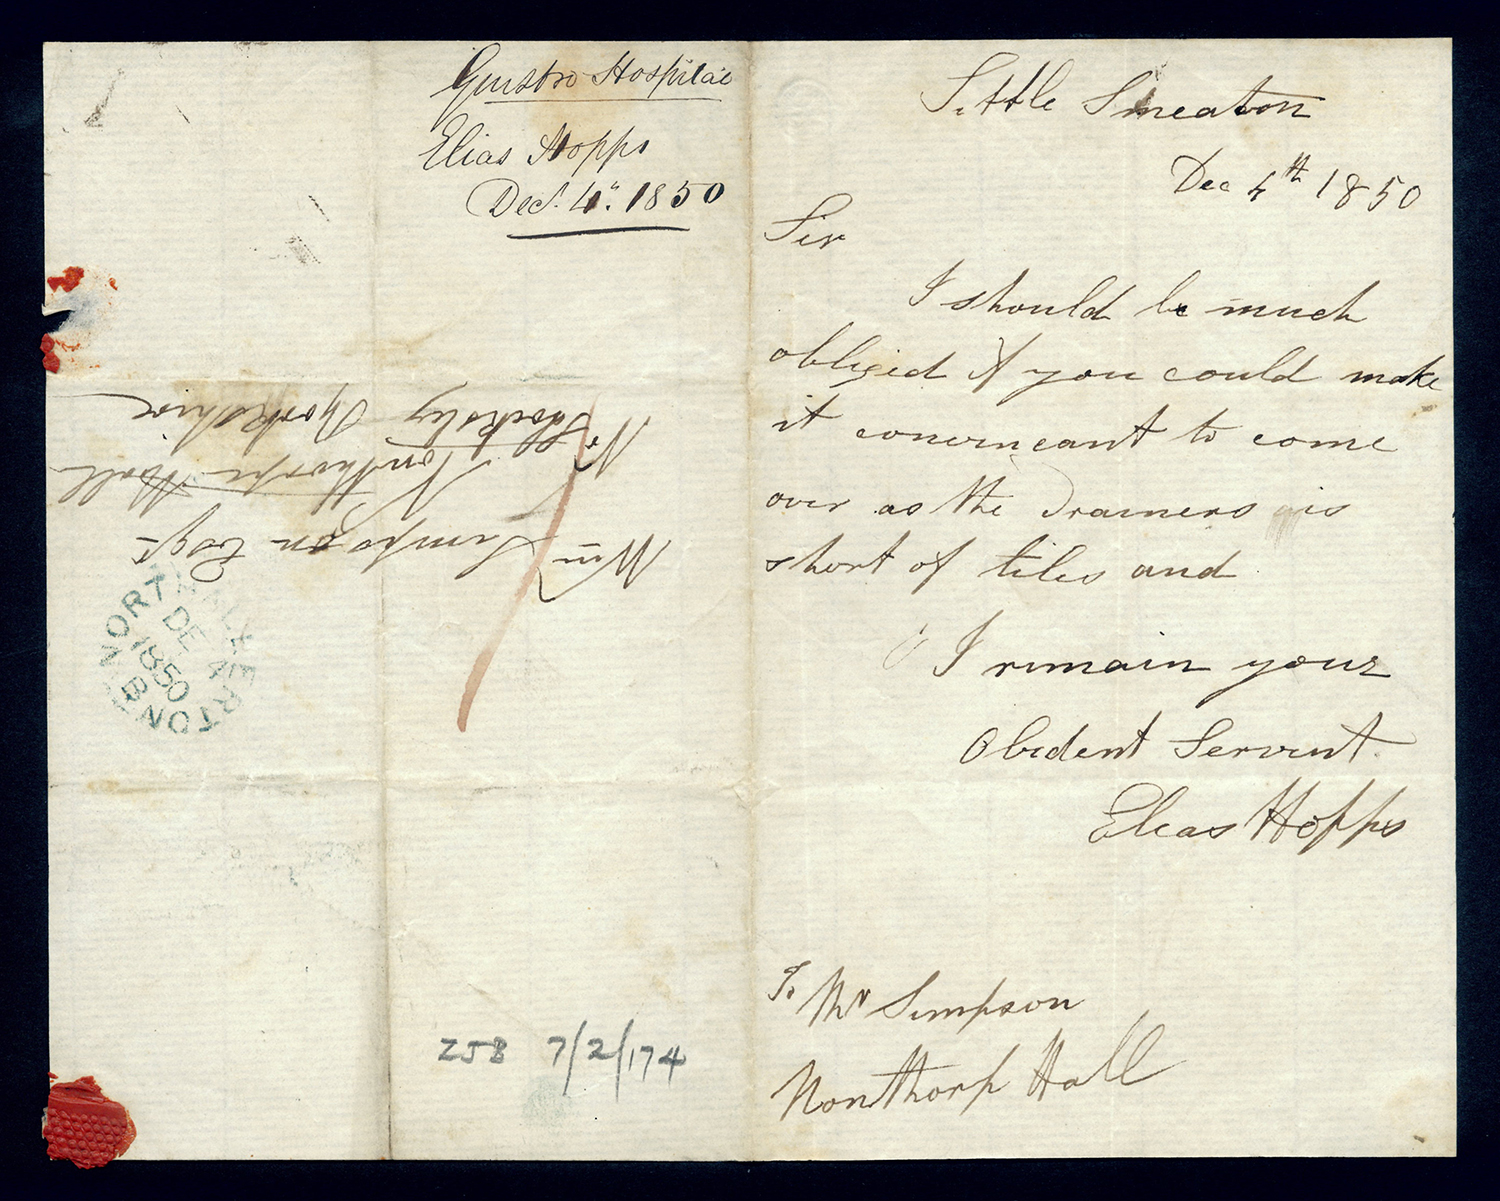 Hospital
Elias Hopps
Decr. 4th. 1850
Wm Simpson Esqre
Nonthorpe Hall
Nr Stokesley Yorkshire
NORTHALLERTON
DE 4
1850
B
ZSB 7/2/174
Little Smeaton
Dec 4th 1850
Sir
I should be much
obliged if you could make
it conveneant to come
over as the Drainers is
short of tiles and
I remain your
Obident Servent
Elias Hopps
To Mr Simpson
Nonthorp Hall